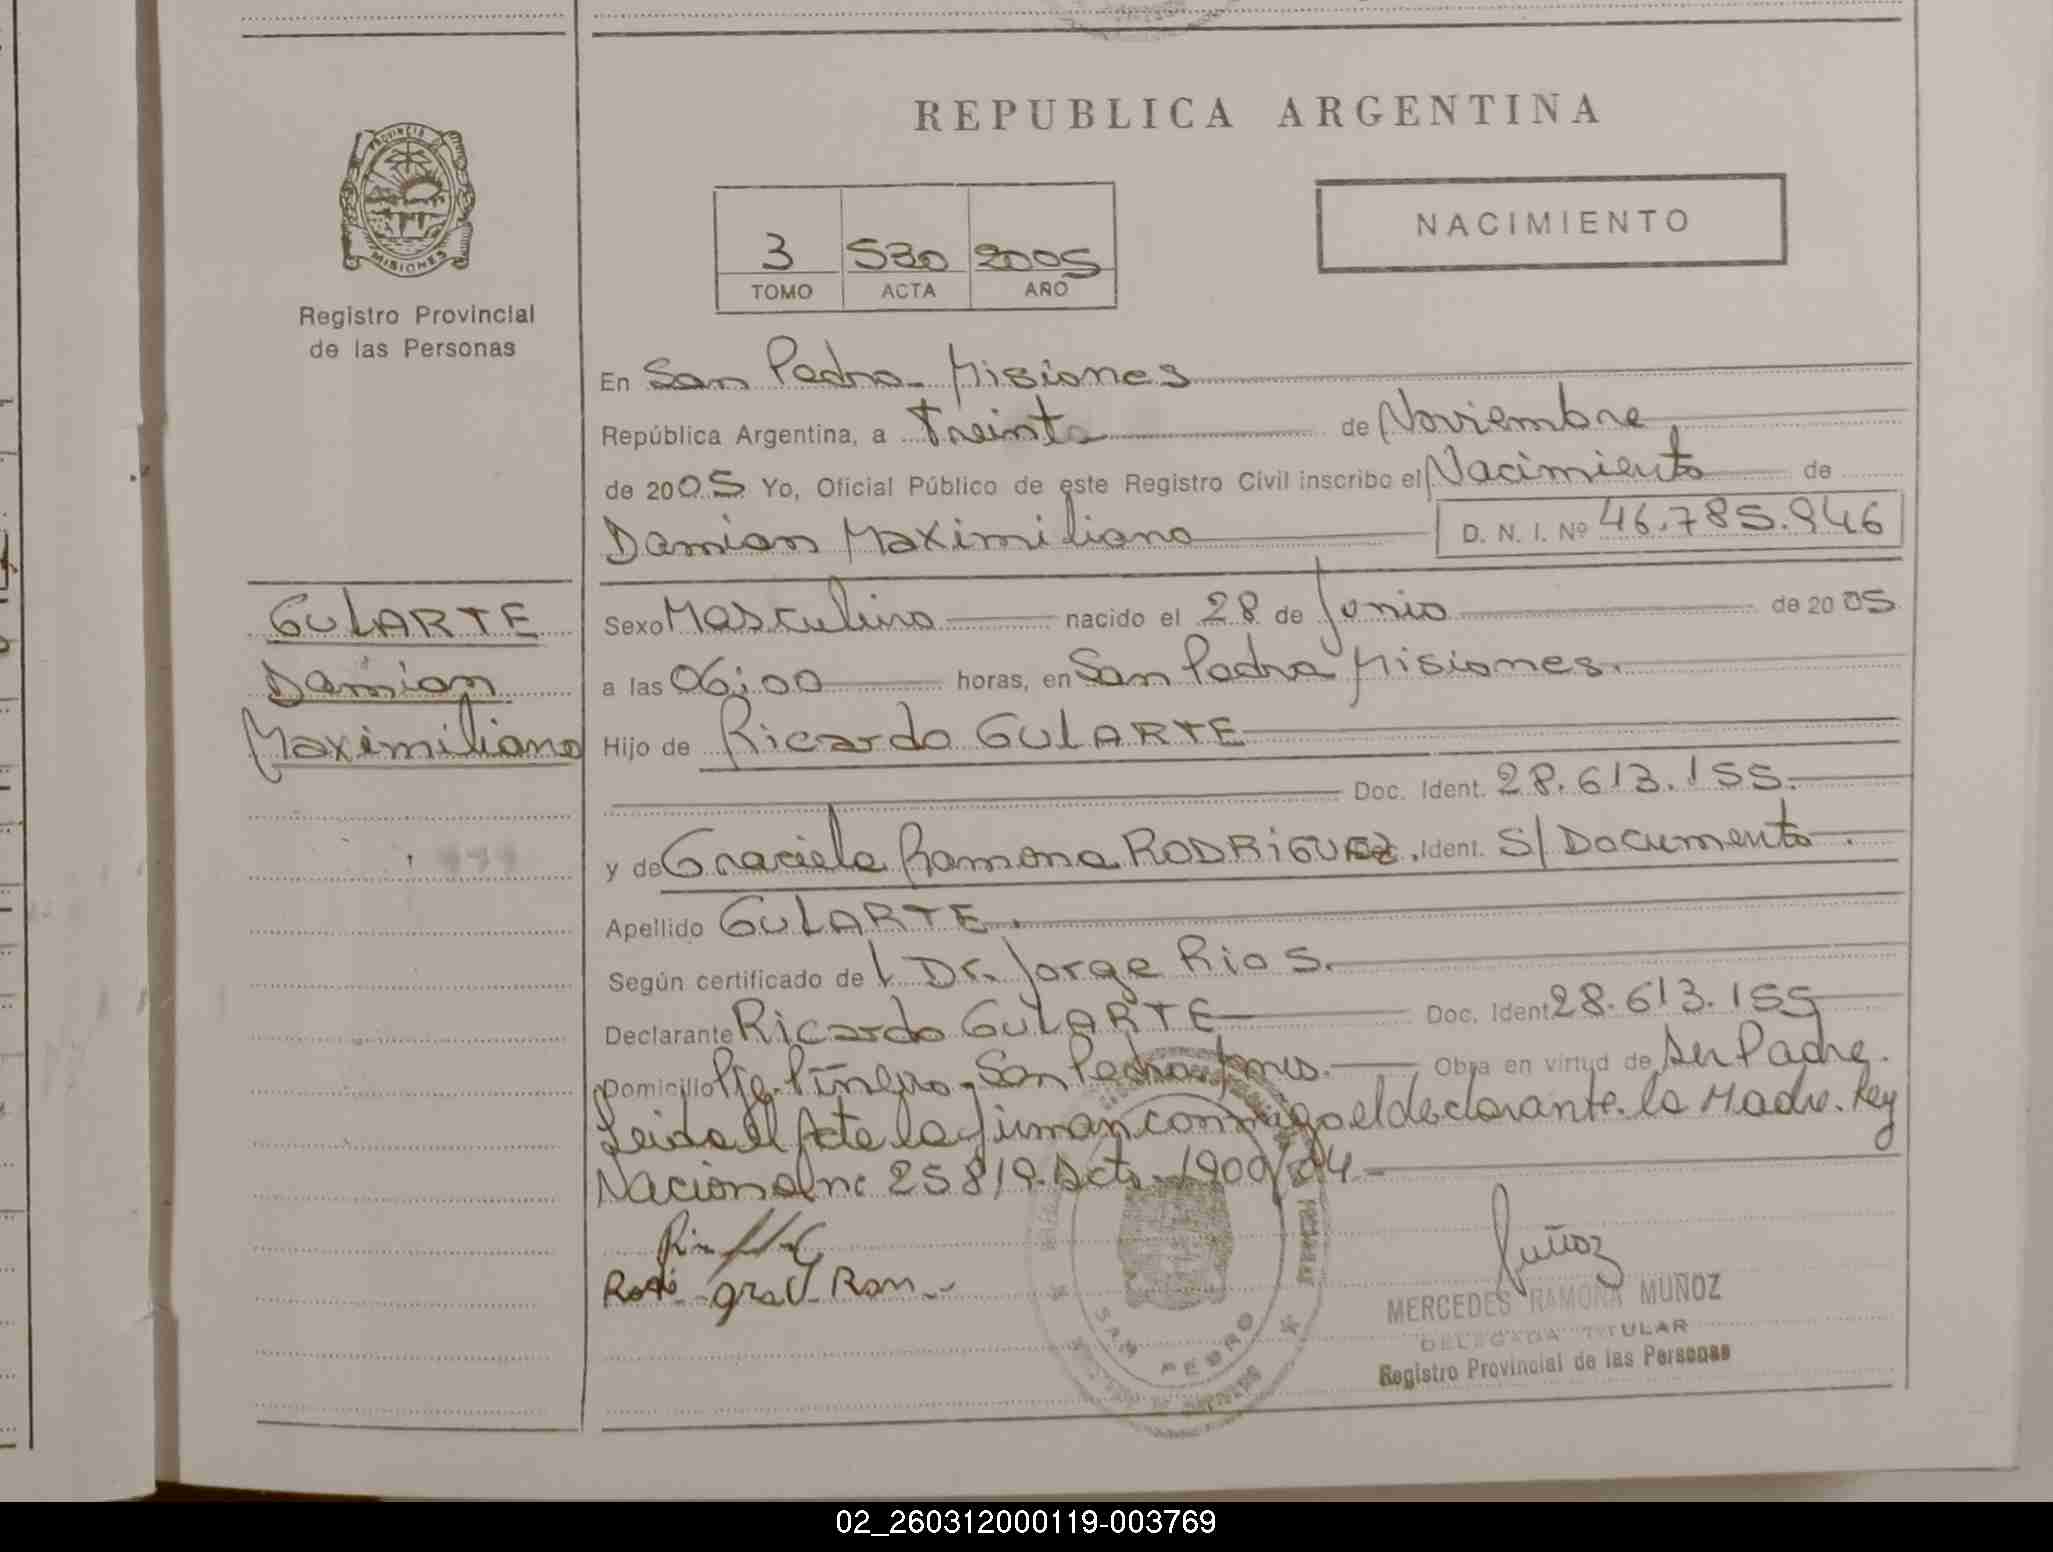 REPUBLICA ARGENTINA
PROVINCIA DE
MISIONES
Registro Provincial
de las Personas
3 530 2005
TOMO ACTA AÑO
NACIMIENTO
En San Pedro- Misiones
República Argentina, a Treinta de Noviembre
de 2005 Yo, Oficial Público de este Registro Civil inscribo el Nacimiento de
Damian Maximiliano D. N. I. Nº 46.785.946
GULARTE
Damian
Maximiliano
Sexo Masculino nacido el 28 de Junio de 2005
a las 06:00 horas, en San Pedro Misiones.
Hijo de Ricardo GULARTE
Doc. Ident. 28.613.155.
y de Graciela Ramona RODRIGUEZ. Ident. S/Documento.
Apellido GULARTE.
Según certificado de Dr. Jorge Rios.
Declarante Ricardo GULARTE Doc. Ident 28.613.155
Domicilio Pje. Piñero- San Pedro. Mnes. Obra en virtud de ser Padre.
Leida el Acta la firman conmigo el declarante. la Madre. Ley
Nacional nº 25819. Dcto. 1900/04.-
SAN PEDRO
Muñoz
MERCEDES RAMONA MUÑOZ
DELEGADA TITULAR
Registro Provincial de las Personas
02_260312000119-003769